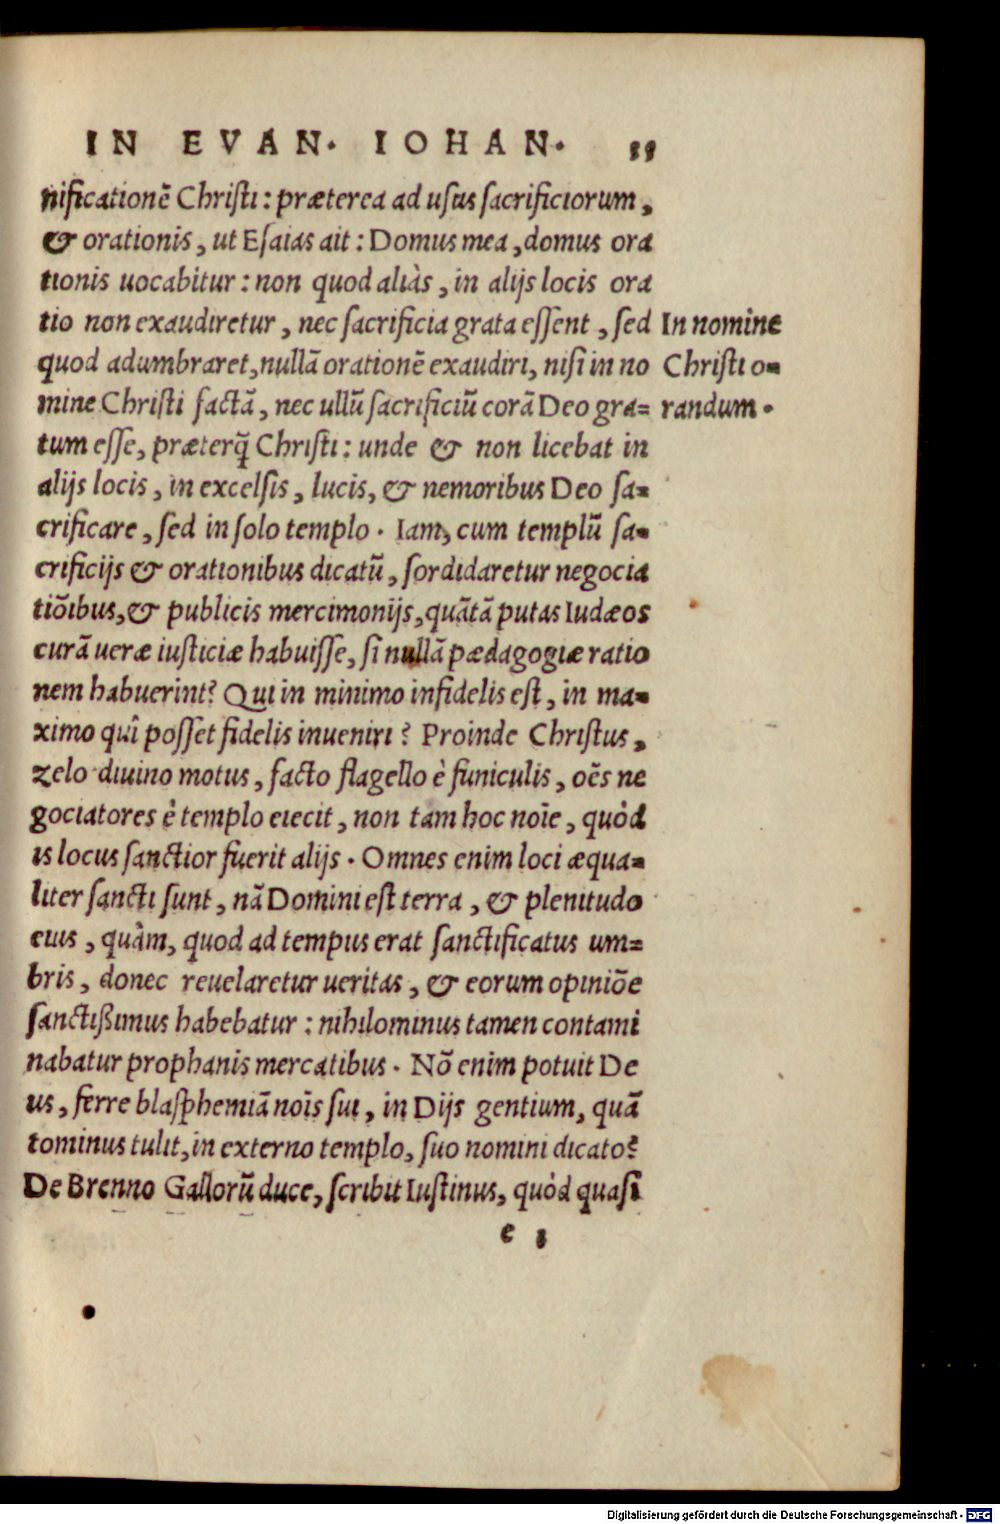 IN EVAN. IOHAN. 33
nificationē Christi: præterea ad usus sacrificiorum,
& orationis, ut Esaias ait: Domus mea, domus ora
tionis uocabitur: non quod aliàs, in alijs locis ora
tio non exaudiretur, nec sacrificia grata essent, sed
In nomine
quod adumbraret, nullā orationē exaudiri, nisi in no
Christi o-
mine Christi factā, nec ullū sacrificiū corā Deo gra-
randum.
tum esse, præterq̄ Christi: unde & non licebat in
alijs locis, in excelsis, lucis, & nemoribus Deo sa-
crificare, sed in solo templo. Iam, cum templū sa-
crificijs & orationibus dicatū, sordidaretur negocia
tiōibus, & publicis mercimonijs, quātā putas Iudæos
curā ueræ iusticiæ habuisse, si nullā pædagogiæ ratio
nem habuerint? Qui in minimo infidelis est, in ma-
ximo quî posset fidelis inueniri? Proinde Christus,
zelo diuino motus, facto flagello è funiculis, oēs ne
gociatores è templo eiecit, non tam hoc noīe, quòd
is locus sanctior fuerit alijs. Omnes enim loci æqua-
liter sancti sunt, nā Domini est terra, & plenitudo
eius, quàm, quod ad tempus erat sanctificatus um-
bris, donec reuelaretur ueritas, & eorum opiniōe
sanctißimus habebatur: nihilominus tamen contami
nabatur prophanis mercatibus. Nō enim potuit De
us, ferre blasphemiā noīs sui, in Dijs gentium, quā
tominus tulit, in externo templo, suo nomini dicato?
De Brenno Gallorū duce, scribit Iustinus, quòd quasi
e 3
Digitalisierung gefördert durch die Deutsche Forschungsgemeinschaft - DFG